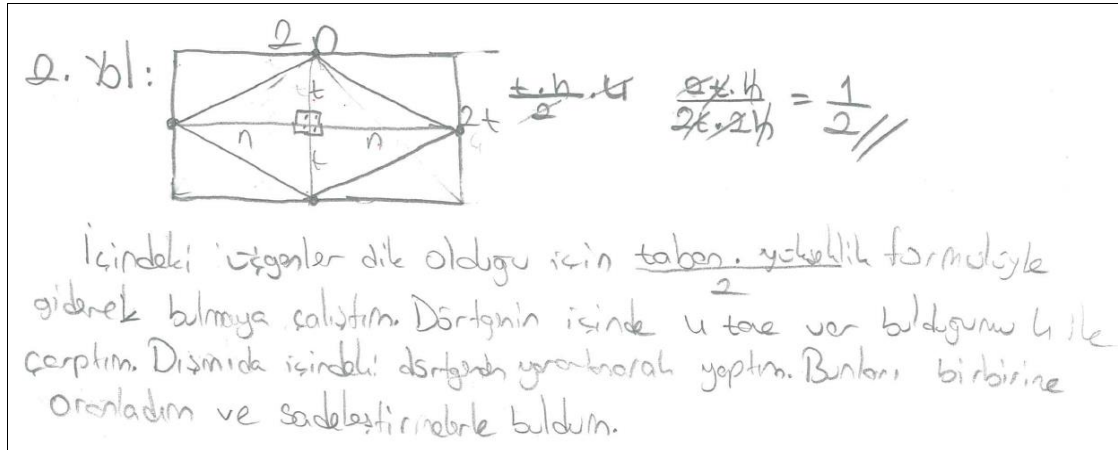 2. Yol:
2n
t
n n 2t
t
t.h/2 . 4 2t.h/2t.2h = 1/2
İçindeki üçgenler dik olduğu için taban. yükseklik/2 formülüyle
giderek bulmaya çalıştım. Dörtgnin içinde 4 tane var bulduğumu 4 ile
çarptım. Dışınıda içindeki dörtgenden yararlanarak yaptım. Bunları birbirine
oranladım ve sadeleştirmelerle buldum.